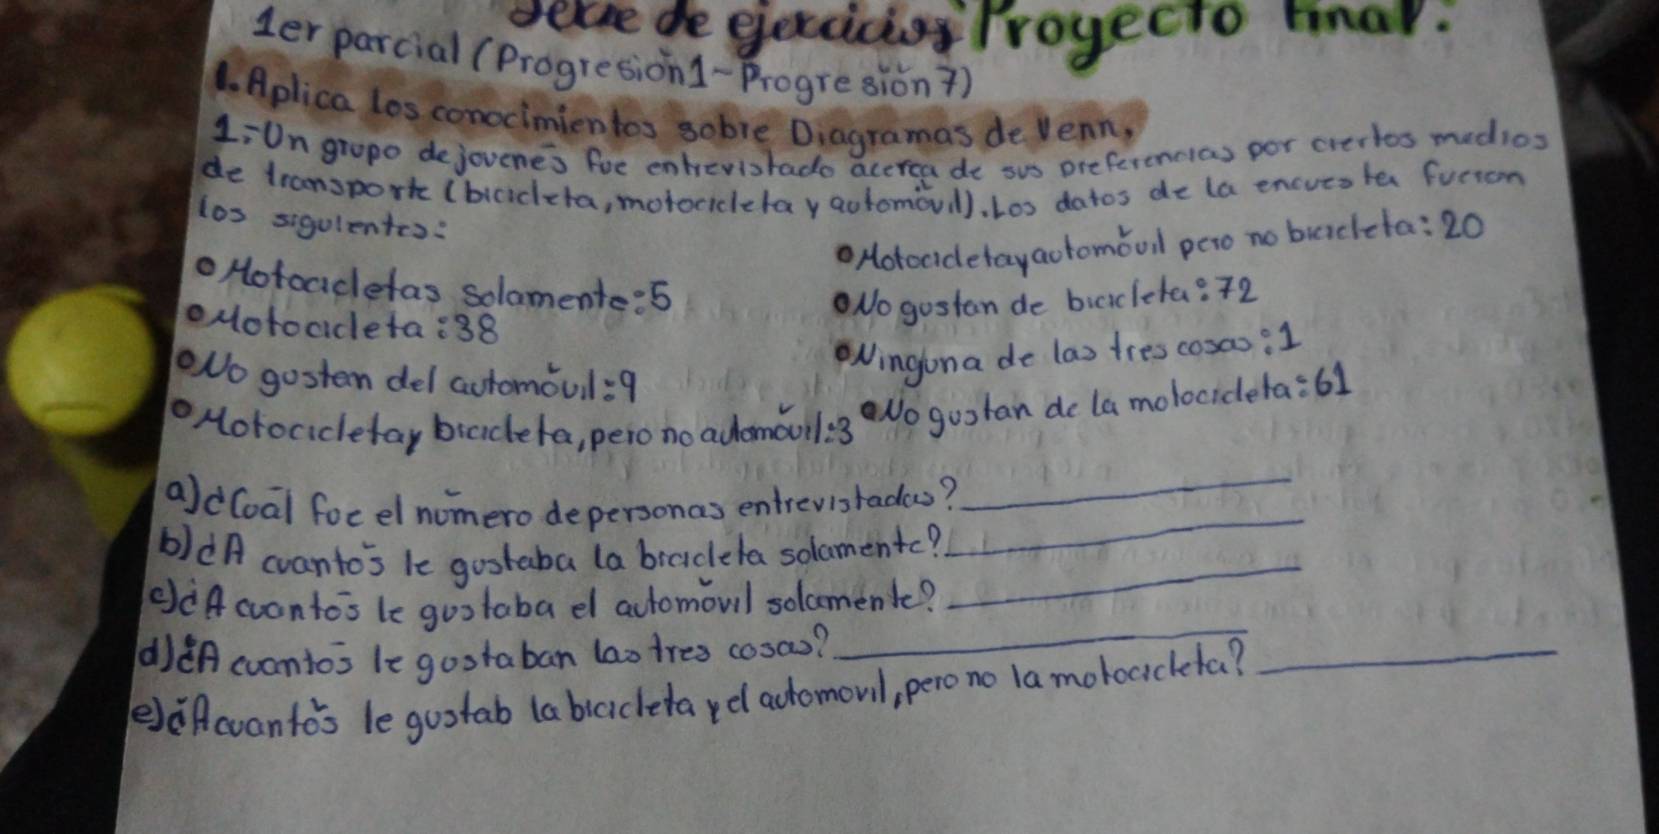 Serie de ejercicios Proyecto Final.
1er parcial (Progresión 1 - Progresión 7)
1. Aplica los conocimientos sobre Diagramas de Venn.
1.- Un grupo de jovenés fue entrevistado acerca de sus preferencias por ciertos medios
de transporte (bicicleta, motocicleta y automóvil). Los datos de la encuesta fueron
los siguientes:
• Motocicletas solamente: 5
• Motocicleta: 38
• No gustan del automóvil: 9
• Motocicleta y bicicleta, pero no automóvil: 3
• Motocicleta y automóvil pero no bicicleta: 20
• No gustan de bicicleta: 72
• Ninguna de las tres cosas: 1
• No gustan de la motocicleta: 61
a) ¿Cuál fue el número de personas entrevistadas?
b) ¿A cuantós le gustaba la bicicleta solamente?
c) ¿A cuantós le gustaba el automóvil solamente?
d) ¿A cuantós le gustaban las tres cosas?
e) ¿A cuantós le gustab la bicicleta y el automovil, pero no la motocicleta?